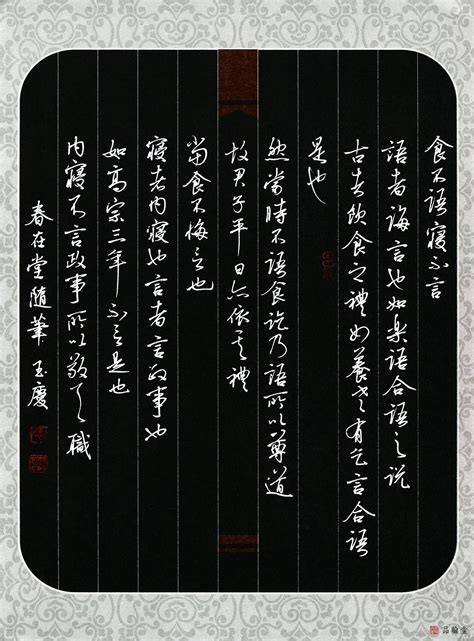 食不語寢不言
語者誨言也如樂語合語之說
古者飲食之禮如養老有乞言合語
是也
然當時不語食訖乃語所以尊道
故君子平日亦依其禮
當食不悔言也
寢者內寢也言者言政事也
如高宗三年不言是也
內寢不言政事所以敬其職
春在堂隨筆 玉慶